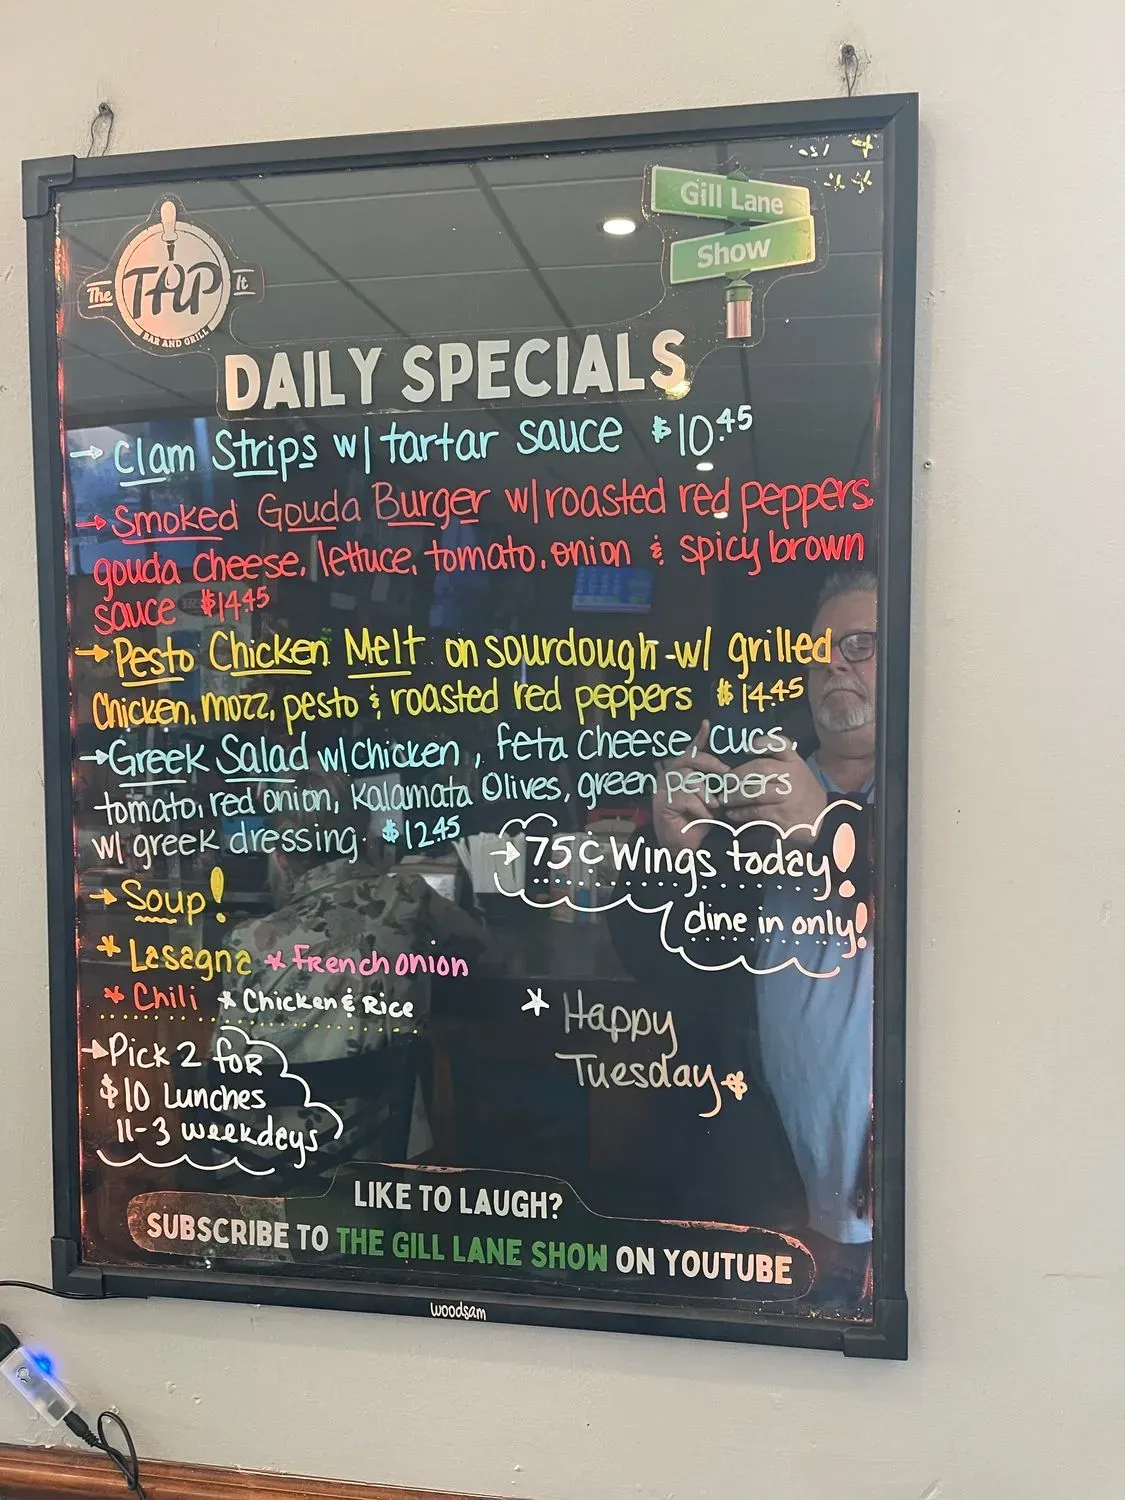 Gill Lane
Show
The TAP It
BAR AND GRILL
DAILY SPECIALS
→ Clam Strips w/ tartar sauce $10.45
→ Smoked Gouda Burger w/ roasted red peppers,
gouda cheese, lettuce, tomato, onion & spicy brown
sauce $14.45
→ Pesto Chicken Melt on sourdough - w/ grilled
Chicken, mozz, pesto & roasted red peppers $14.45
→ Greek Salad w/ Chicken, feta cheese, cucs,
tomato, red onion, Kalamata Olives, green peppers
w/ greek dressing. $12.45
→ 75¢ Wings today!
dine in only!
→ Soup!
* Lasagna * French onion
* Chili * Chicken & Rice
→ Pick 2 for
$10 Lunches
11-3 weekdays
* Happy
Tuesday *
LIKE TO LAUGH?
SUBSCRIBE TO THE GILL LANE SHOW ON YOUTUBE
woodsam